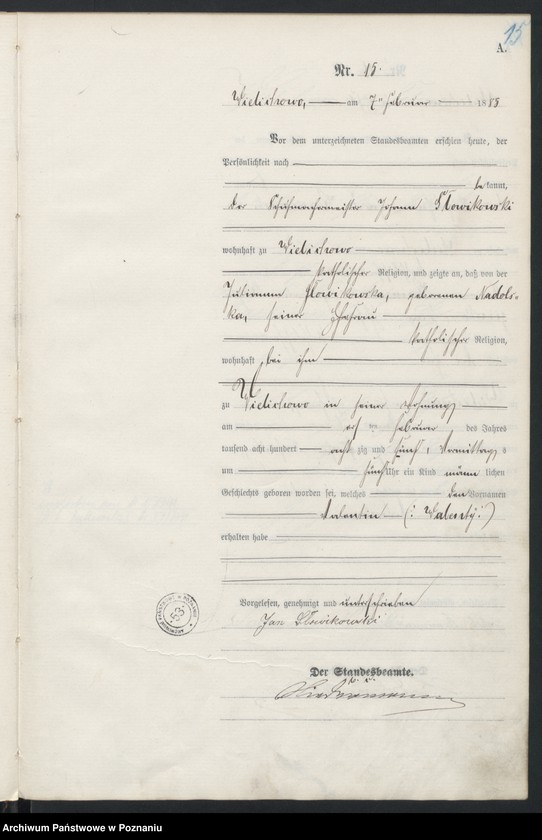 15
A.
Nr. 15.
am 7ten Februar 1885
Vor dem unterzeichneten Standesbeamten erschien heute, der
Persönlichkeit nach
bekannt,
der Schuhmachermeister Johann Słowikowski
wohnhaft zu
katholischer Religion, und zeigte an, daß von der
Julianna Słowikowska, geborenen Nadols-
ka, seiner Ehefrau
katholischer Religion,
wohnhaft bei ihm
zu in seiner Wohnung
am ten Februar, des Jahres
tausend acht hundert acht zig und fünf, Vormittags
um fünf Uhr ein Kind männlichen
Geschlechts geboren worden sei, welches den Vornamen
Valentin (: Walenty :)
erhalten habe
Vorgelesen, genehmigt und unterschrieben
Jan Słowikowski
Der Standesbeamte.
ARCHIWUM PAŃSTWOWE W POZNANIU
53
Archiwum Państwowe w Poznaniu